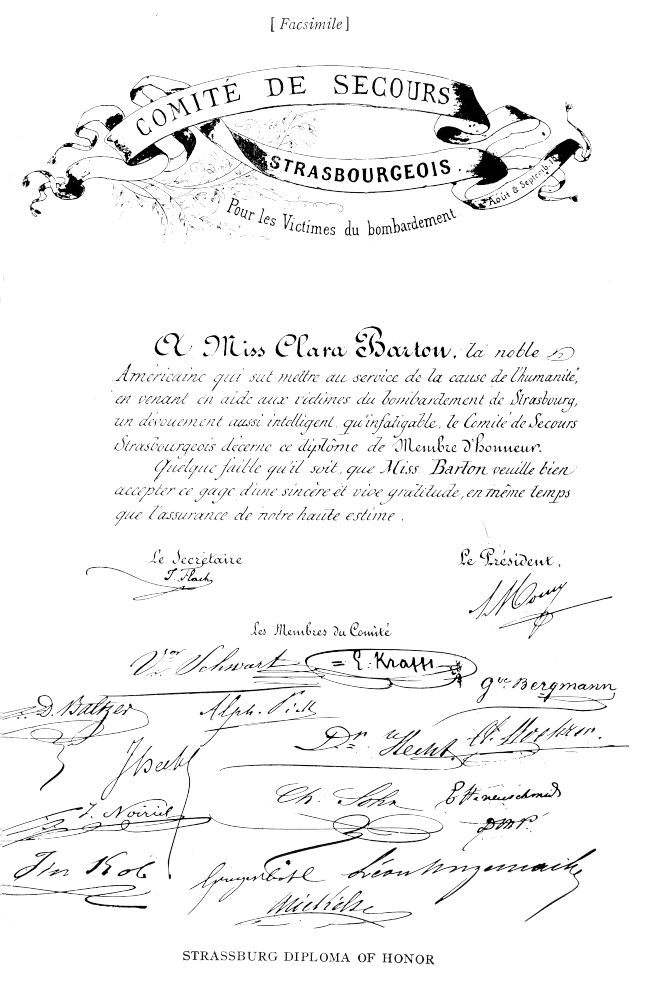 [ Facsimile ]
COMITÉ DE SECOURS
STRASBOURGEOIS.
Août & Septemb.
Pour les Victimes du bombardement
A Miss Clara Barton, la noble
Américaine qui sut mettre au service de la cause de l'humanité,
en venant en aide aux victimes du bombardement de Strasbourg,
un dévouement aussi intelligent qu'infatigable, le Comité de Secours
Strasbourgeois décerne ce diplôme de Membre d'honneur.
Quelque faible qu'il soit, que Miss Barton veuille bien
accepter ce gage d'une sincère et vive gratitude, en même temps
que l'assurance de notre haute estime.
Le Secrétaire
Le Président.
J. Flach
Les Membres du Comité
Vtor Schwart
E. Krafft
Gve Bergmann
D. Baltzer
Alph.
Dr Hecht
J. Noiriel
Ch. Sohn
STRASSBURG DIPLOMA OF HONOR